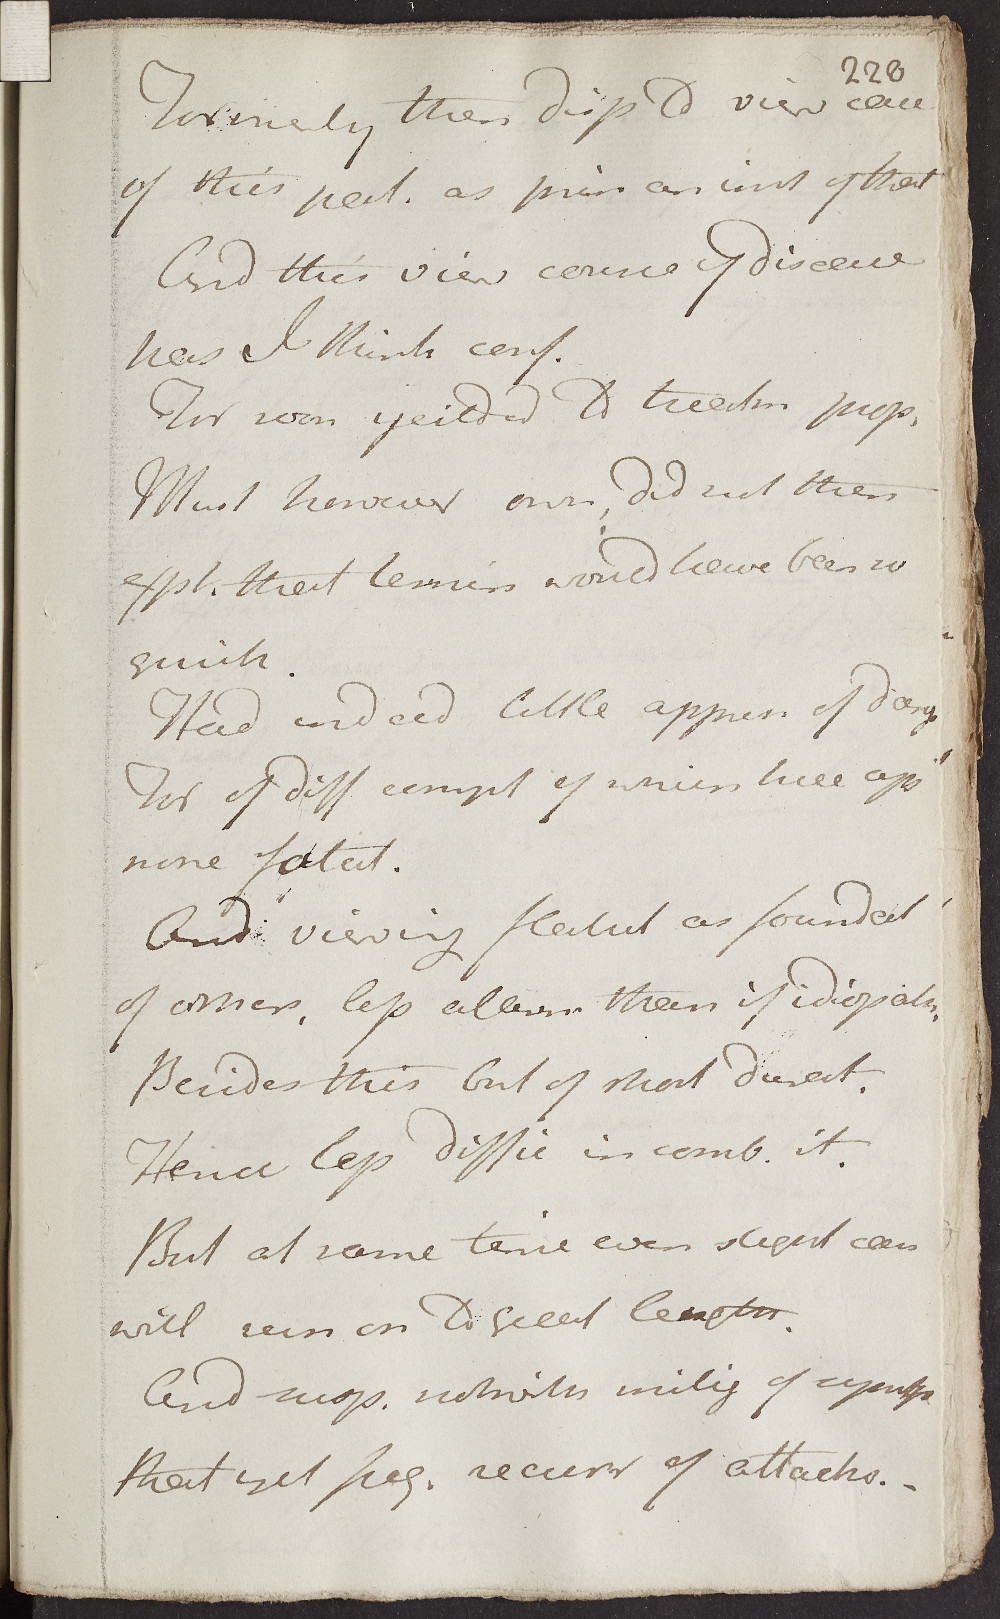 228
Formerly then disp to view case
of this pat. as prin an inst of that
And this view course of disease
has I think conf.
For soon yeilded to treatm prop.
Must however own, did not then
exp. that termin would have been so
quick.
Had indeed little appren of dang
For of diff compl of which hee app
none fatal.
And viewing as founded
of others, less alarm than if idiopath.
Besides this but of short durat.
Hence less diffic in comb. it.
But at same time even slight cas
will run on to great length.
And susp. notwith mitig of sympt
that yet freq. recurr of attacks. -